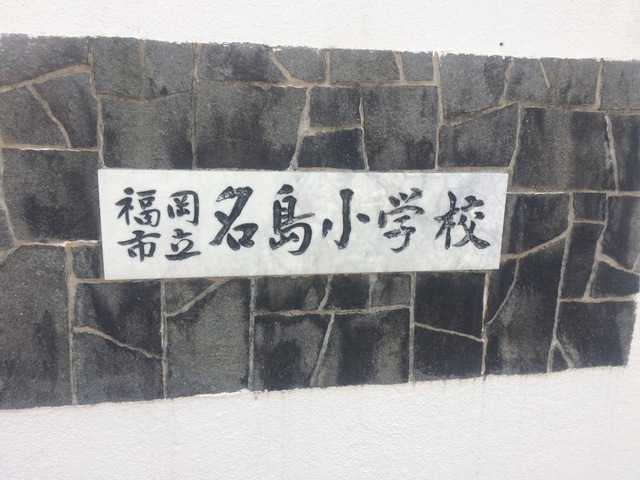 福岡市立名島小学校